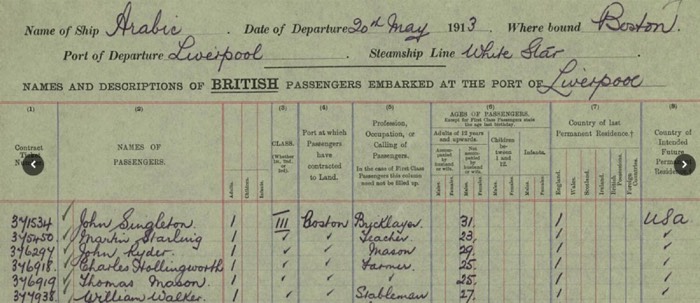 Name of Ship Arabic Date of Departure 20th May 1913 Where bound Boston.
Port of Departure Liverpool Steamship Line White Star
NAMES AND DESCRIPTIONS OF BRITISH PASSENGERS EMBARKED AT THE PORT OF Liverpool
(1) (2) (3) (4) (5) (6) (7) (8)
Contract Ticket
NAMES OF PASSENGERS.
CLASS. (Whether 1st, 2nd,
Port at which Passengers have contracted to Land.
Profession, Occupation, or Calling of Passengers.
In the case of First Class Passengers this column need not be filled up.
AGES OF PASSENGERS.
Adults of 12 years and upwards.
Children between 1 and 12.
Infants.
Country of last Permanent Residence.†
Country of Intended Future
Adults. Children. Infants. Males Females Males Females Males Females Males Females England. Wales. Scotland. Ireland. British Possessions. Foreign Countries.
371534 John Singleton. 1 III Boston Bycklayer. 31. 1 USA
Martin Starling 1 Teacher 23. 1
John Ryder. 1 Mason 29. 1
376918. Charles Hollingworth 1 Farmer. 25. 1
376919 Thomas Mason. 1 25. 1
William Walker. 1 Stableman 27. 1